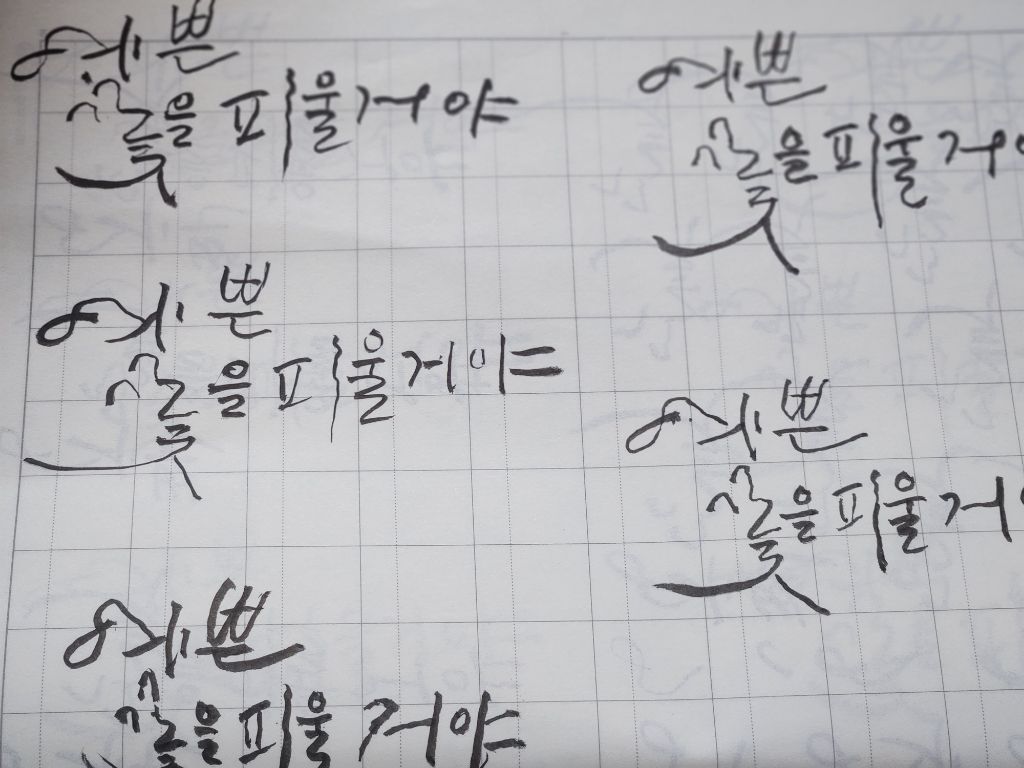 예쁜
꽃을 피울거야
예쁜
꽃을 피울거야
예쁜
꽃을 피울거야
예쁜
꽃을 피울거
예쁜
꽃을 피울거